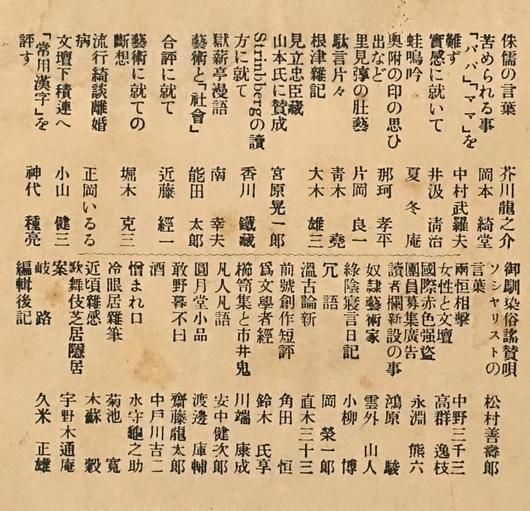 侏儒の言葉 芥川龍之介
苦められる事 岡本綺堂
「パパ」「ママ」を難ず 中村武羅夫
實感に就いて 井汲清治
蛙鳴吟 夏冬庵
奥附の印の思ひ出など 那珂孝平
里見淳の肚藝 片岡良一
駄言片々 青木堯
根津雜記 大木雄三
見立忠臣藏
山本氏に賛成 宮原晃一郎
Strindbergの讀方に就て 香川鐵藏
獄薪亭漫語 南幸夫
藝術と「社會」 能田太郎
合評に就て 近藤經一
藝術に就ての斷想 堀木克三
流行綺談離婚病 正岡いるる
文壇下積連へ 小山健三
「常用漢字」を評す 神代種亮
御馴染俗謠賛唄 松村善壽郎
ソシヤリストの言葉 中野三千三
兩恒相擊
女性と文壇 高群逸枝
國際赤色强盗 永淵熊六
團員募集廣告
讀者欄新設の事 鴻原駿
奴隷藝術家 雲外山人
綠陰寢言日記 小柳博
冗語 岡榮一郎
溫古論新 直木三十三
前號創作短評 角田恒
爲文學者經 鈴木氏亨
櫛笥集と市井鬼 川端康成
凡人凡語 安中健次郎
圓月堂小品 渡邊庫輔
敢野暮不曰 齋藤龍太郎
酒 中戸川吉二
憎まれ口 水守龜之助
冷眼居雜筆 菊池寛
近頃雜感 木蘇穀
歌舞伎芝居隱居案 宇野木通庵
岐路 久米正雄
編輯後記